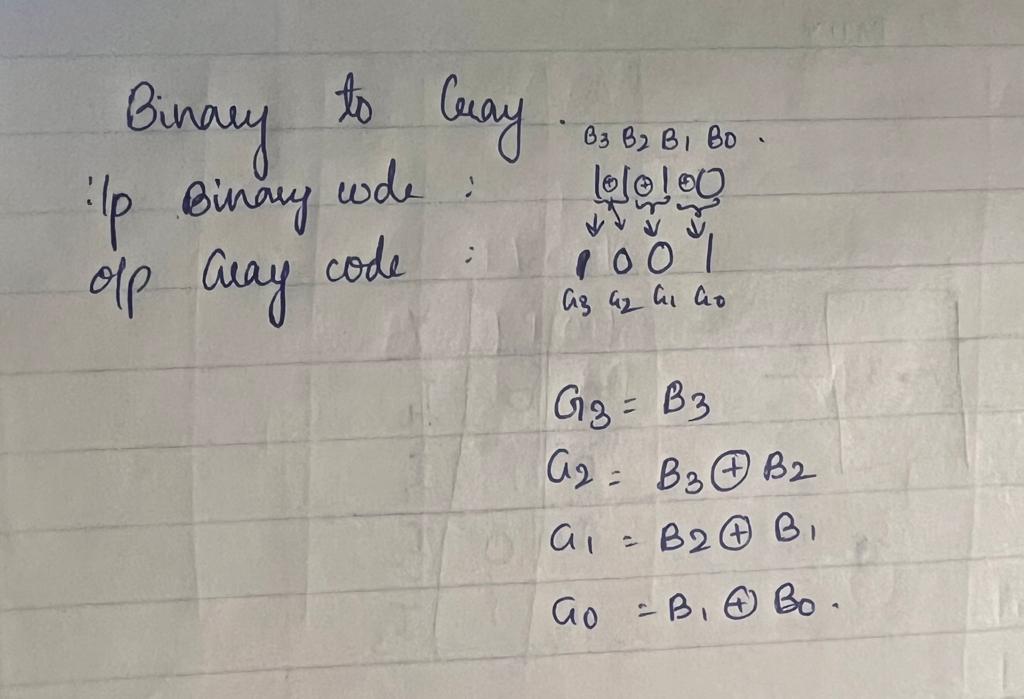 Binary to Gray.
B3 B2 B1 B0.
i/p Binary code : 1⊕1⊕1⊕0
o/p Gray code : 1 0 0 1
G3 G2 G1 G0
G3 = B3
G2 = B3 ⊕ B2
G1 = B2 ⊕ B1
G0 = B1 ⊕ B0.